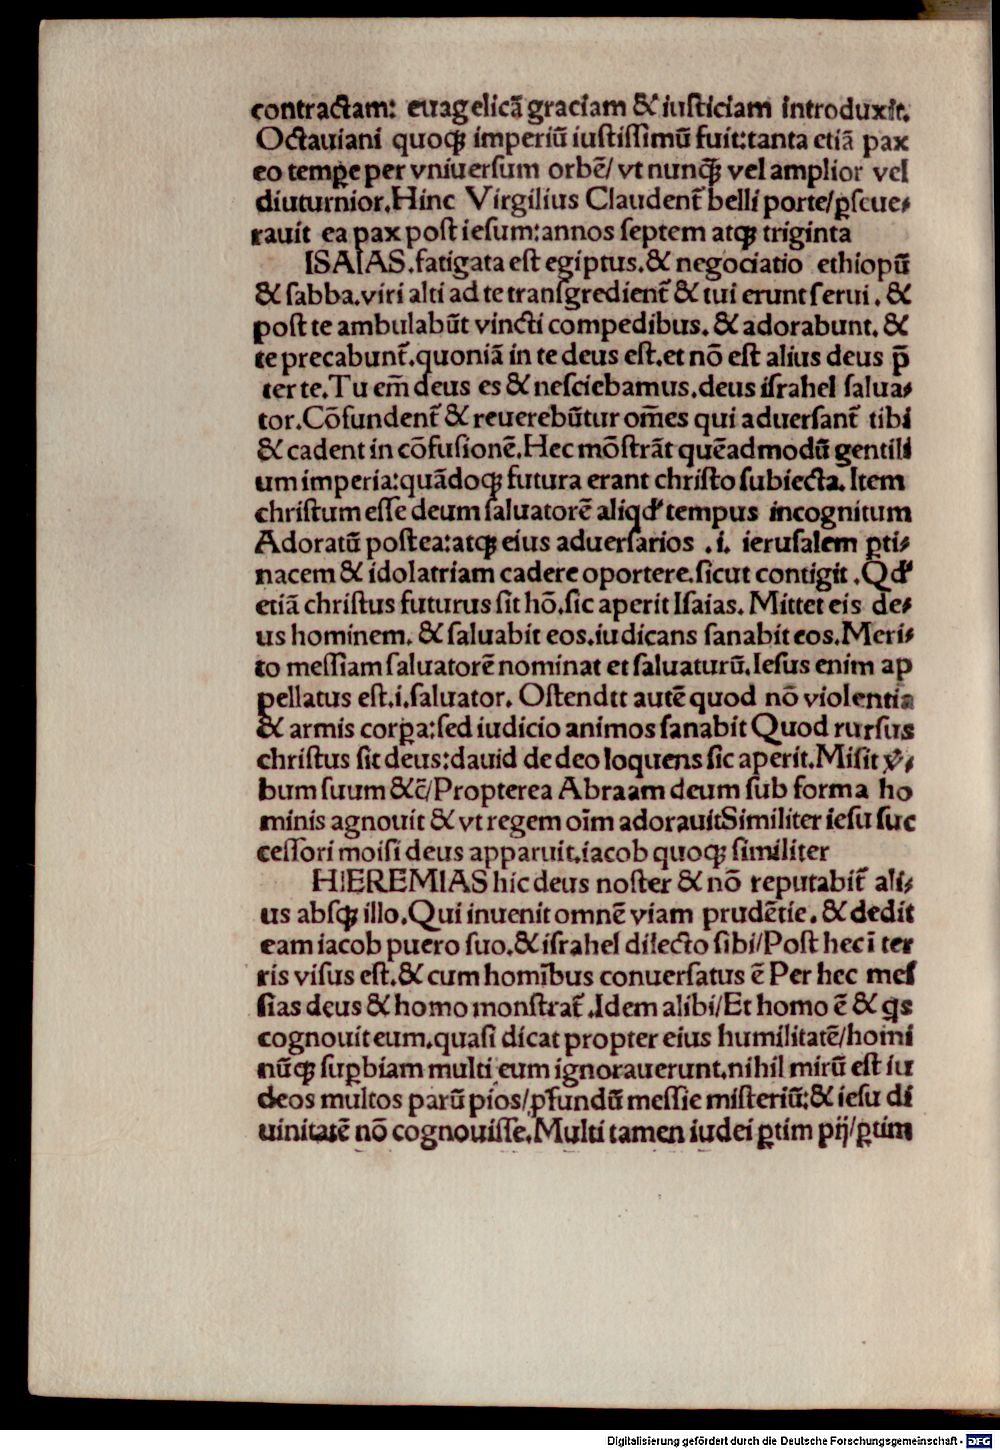 contractam: euāgelicā graciam & iusticiam introduxit.
Octauiani quoqꝫ imperiū iustissimū fuit:tanta etiā pax
eo temp̲e per vniuersum orbē/ vt nunq̄ꝫ vel amplior vel
diuturnior.Hinc Virgilius Claudent᷑ belli porte/p̲seue⸗
rauit ea pax post iesum:annos septem atqꝫ triginta
ISAIAS.fatigata est egiptus.& negociatio ethiopū
& sabba.viri alti ad te transgredient᷑ & tui erunt serui . &
post te ambulabūt vincti compedibus. & adorabunt. &
te precabunt᷑.quoniā in te deus est.et nō est alius deus p̄
ter te.Tu em̄ deus es & nesciebamus.deus israhel salua⸗
tor.Cōfundent᷑ & reuerebūtur om̄es qui aduersant᷑ tibi
& cadent in cōfusionē.Hec mōstrāt quēadmodū gentili
um imperia:quādoqꝫ futura erant christo subiecta. Item
christum esse deum saluatorē aliqd᷑ tempus incognitum
Adoratū postea:atqꝫ eius aduersarios .i. ierusalem p̲ti⸗
nacem & idolatriam cadere oportere.sicut contigit .Qd᷑
etiā christus futurus sit hō.sic aperit Isaias. Mittet eis de⸗
us hominem. & saluabit eos.iudicans sanabit eos.Meri⸗
to messiam saluatorē nominat et saluaturū.Iesus enim ap
pellatus est.i.saluator. Ostendtt autē quod nō violentia
& armis corp̲a:sed iudicio animos sanabit Quod rursus
christus sit deus:dauid de deo loquens sic aperit.Misit v̓⸗
bum suum &c̄/Propterea Abraam deum sub forma ho
minis agnouit & vt regem oīm adorauitSimiliter iesu suc
cessori moisi deus apparuit.iacob quoqꝫ similiter
HIEREMIAS hic deus noster & nō reputabit᷑ ali⸗
us absqꝫ illo.Qui inuenit omnē viam prudētie. & dedit
eam iacob puero suo.& israhel dilecto sibi/Post hec ī ter
ris visus est.& cum homībus conuersatus ē Per hec mes
sias deus & homo monstrat᷑ .Idem alibi/Et homo ē & q̓s
cognouit eum.quasi dicat propter eius humilitatē/homi
nūqꝫ sup̲biam multi eum ignorauerunt.nihil mirū est iu
deos multos parū pios/ꝓfundū messie misteriū:& iesu di
uinitatē nō cognouisse.Multi tamen iudei p̲tim pij/p̲tim
Digitalisierung gefördert durch die Deutsche Forschungsgemeinschaft - DFG